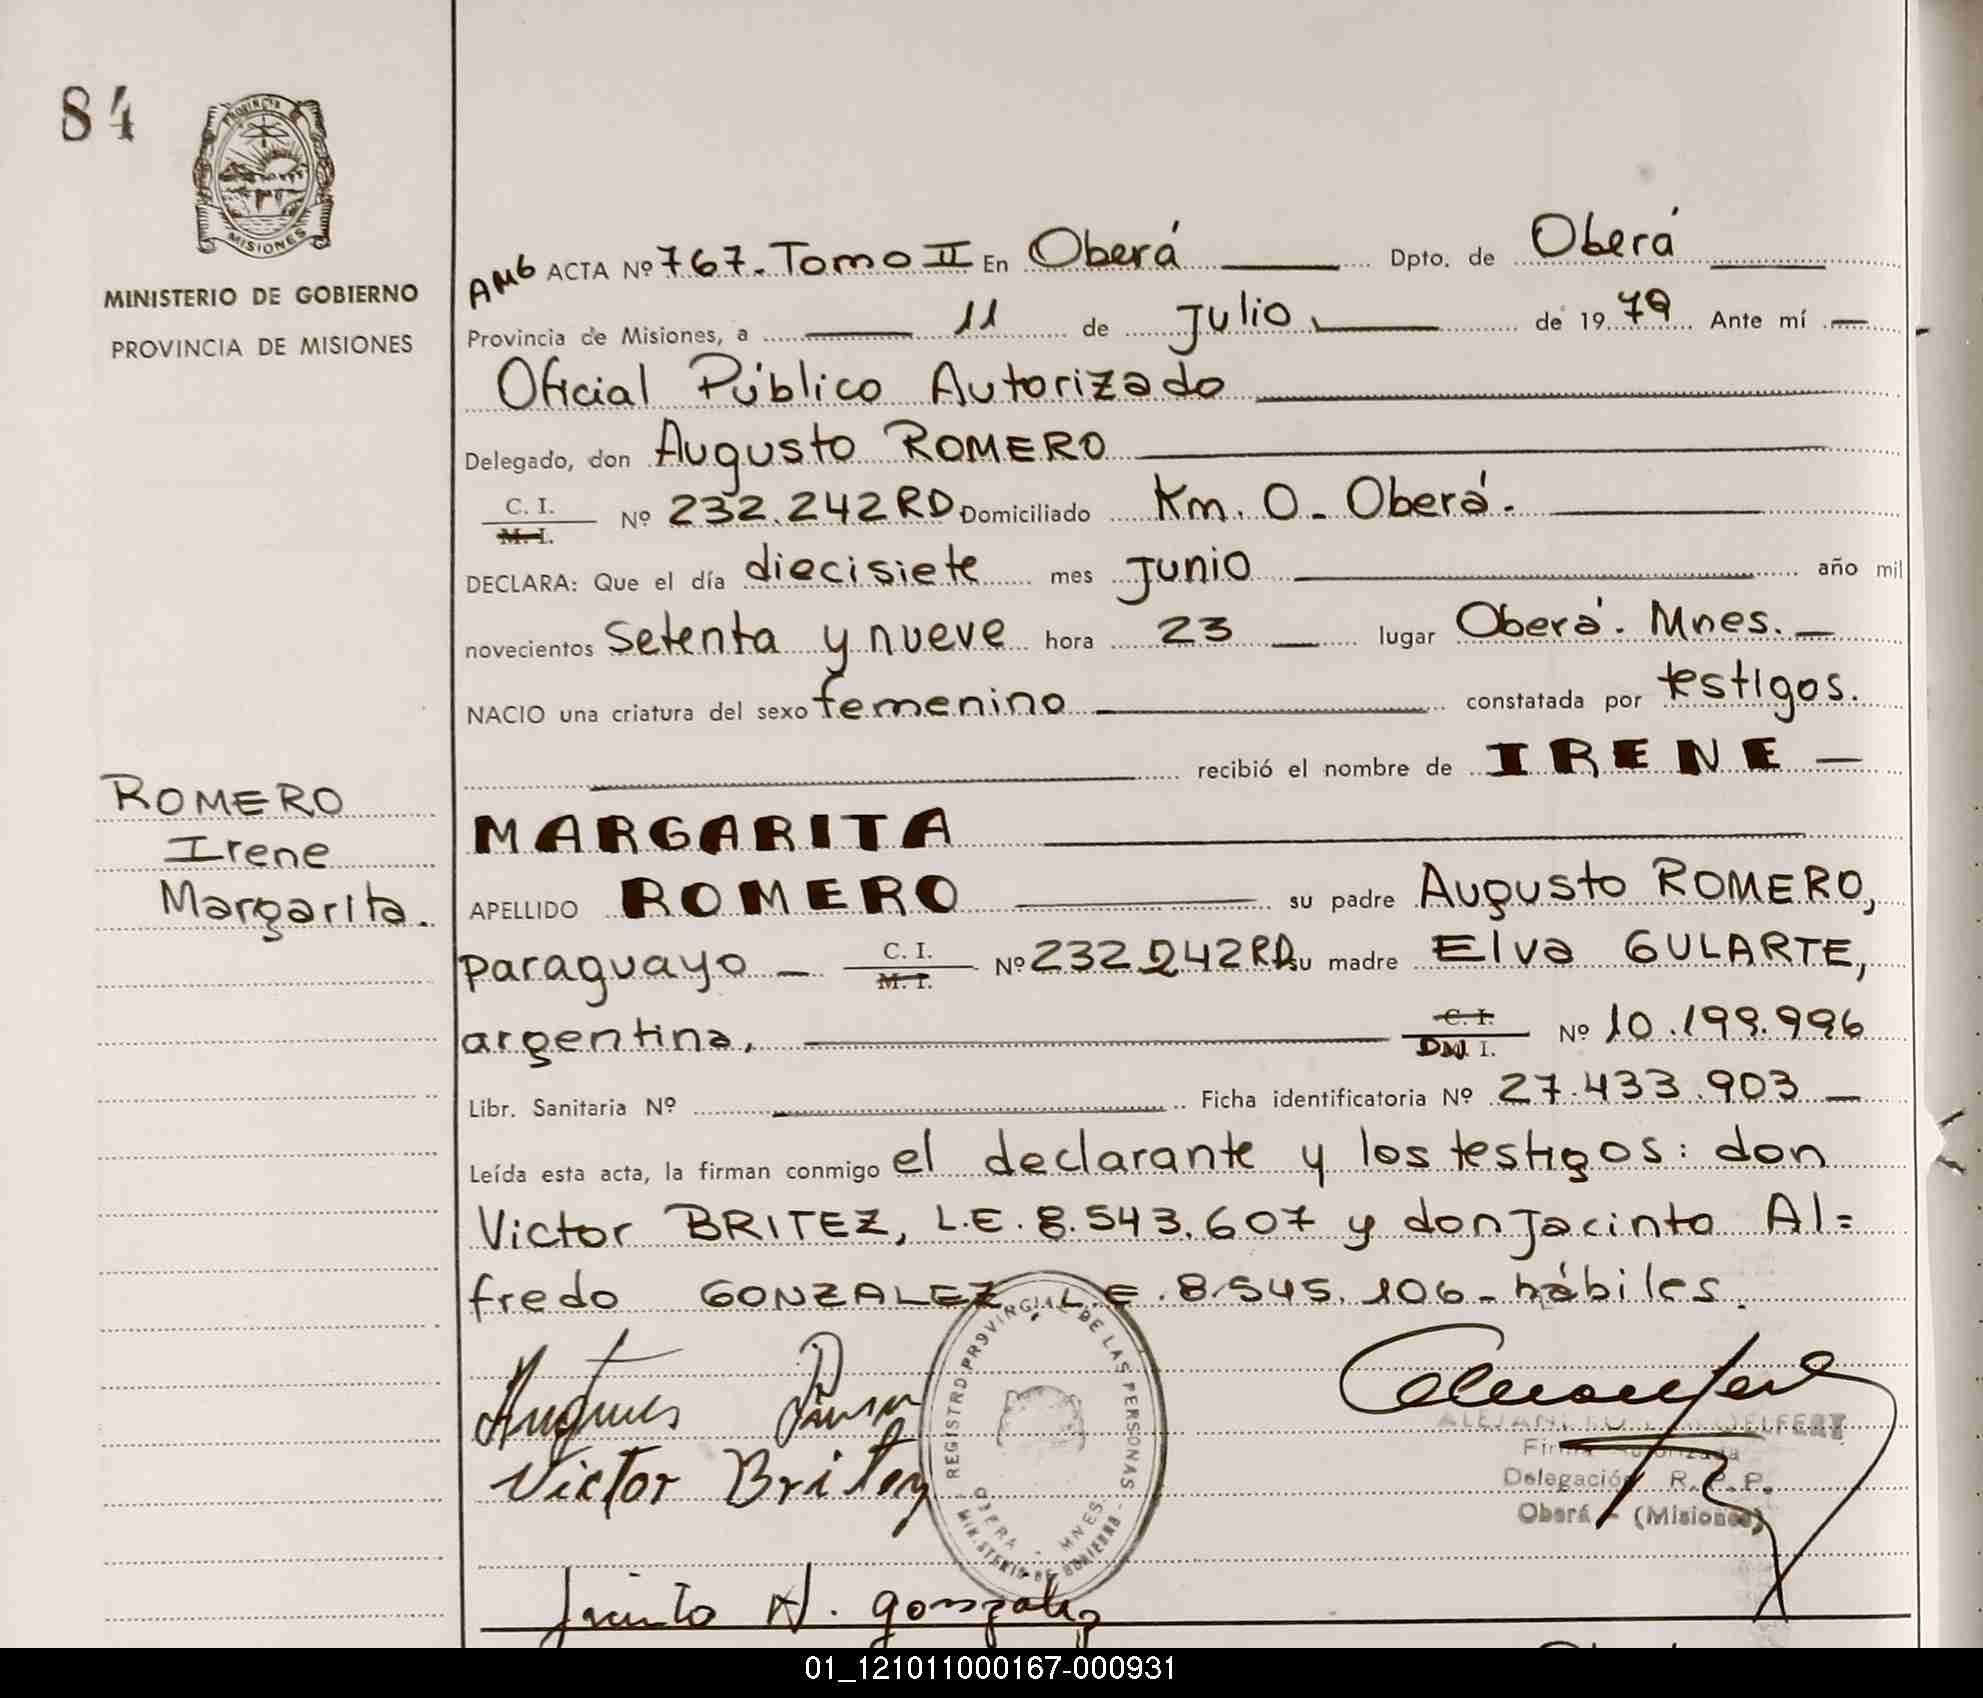 84
PROVINCIA
MISIONES
MINISTERIO DE GOBIERNO
PROVINCIA DE MISIONES
AMG ACTA Nº 767. Tomo II En Oberá Dpto. de Oberá
Provincia de Misiones, a 11 de Julio de 1979 Ante mí
Oficial Público Autorizado
Delegado, don Augusto ROMERO
C. I.
M. I.
Nº 232.242RD Domiciliado Km. 0_ Oberá.
DECLARA: Que el día diecisiete mes Junio año mil
novecientos Setenta y nueve hora 23 lugar Oberá. Mnes.
NACIO una criatura del sexo femenino constatada por testigos.
recibió el nombre de IRENE
ROMERO
Irene
Margarita.
MARGARITA
APELLIDO ROMERO su padre Augusto ROMERO,
paraguayo C. I. M. I. Nº 232.242RD su madre Elva GULARTE,
argentina, C. I. DNI. I. Nº 10.199.996
Libr. Sanitaria Nº Ficha identificatoria Nº 27.433.903
Leída esta acta, la firman conmigo el declarante y los testigos: don
Victor BRITEZ, L.E. 8.543.607 y don Jacinto Al=
fredo GONZALEZ L.E. 8.545.106_ hábiles.
REGISTRO PROVINCIAL DE LAS PERSONAS
OBERA - MNES
MINISTERIO DE GOBIERNO
Victor Britez
Firma Autorizada
Delegación R. P. P.
Oberá - (Misiones)
Jacinto A. gonzalez
01_121011000167-000931